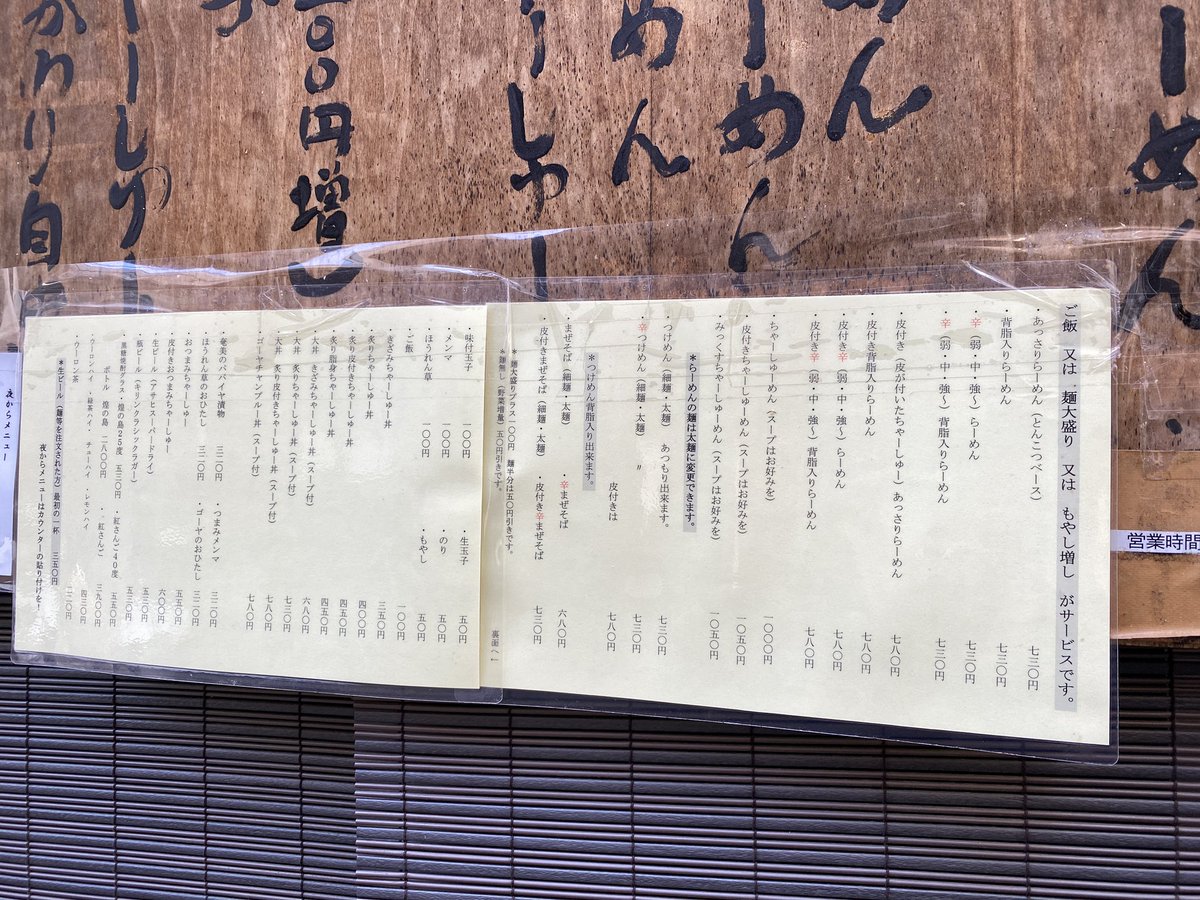 ーめん
めん
ーめん
めん
ーしゅー
二〇〇円増し
ーしゅー
かわり自
営業時間
ご飯 又は 麺大盛り 又は もやし増し がサービスです。
・あっさりらーめん(とんこつベース) 七三〇円
背脂入りらーめん 七三〇円
・辛(弱・中・強〜)らーめん 七三〇円
・辛(弱・中・強〜)背脂入りらーめん 七三〇円
・皮付き(皮が付いたちゃーしゅー)あっさりらーめん 七八〇円
・皮付き背脂入りらーめん 七八〇円
・皮付き辛(弱・中・強〜)らーめん 七八〇円
・皮付き辛(弱・中・強〜)背脂入りらーめん 七八〇円
・ちゃーしゅーめん(スープはお好みを) 一〇〇〇円
・皮付きちゃーしゅーめん(スープはお好みを) 一〇五〇円
・みっくすちゃーしゅーめん(スープはお好みを) 一〇五〇円
*らーめんの麺は太麺に変更できます。
・つけめん(細麺・太麺) あつもり出来ます。 七三〇円
・辛つけめん(細麺・太麺) 〃 七三〇円
皮付きは 七八〇円
*つけめん背脂入り出来ます。
・まぜそば(細麺・太麺) ・辛まぜそば 六八〇円
・皮付きまぜそば(細麺・太麺) ・皮付き辛まぜそば 七三〇円
*麺大盛りプラス一〇〇円 麺半分は五〇円引きです。
*麺無し(野菜増量)五〇円引きです。
裏面へ!
・味付玉子 一〇〇円 ・生玉子 五〇円
・メンマ 一〇〇円 ・のり 五〇円
・ほうれん草 一〇〇円 ・もやし 五〇円
・ご飯 一〇〇円
・きざみちゃーしゅー丼 三五〇円
・炙りちゃーしゅー丼 四〇〇円
・炙り皮付きちゃーしゅー丼 四五〇円
・炙り脂身ちゃーしゅー丼 四五〇円
・大丼 きざみちゃーしゅー丼(スープ付) 六八〇円
・大丼 炙りちゃーしゅー丼(スープ付) 七三〇円
・大丼 炙り皮付きちゃーしゅー丼(スープ付) 七八〇円
・ゴーヤチャンプルー丼(スープ付) 七八〇円
・奄美のパパイヤ漬物 三二〇円 ・つまみメンマ 三二〇円
・ほうれん草のおひたし 三二〇円 ・ゴーヤのおひたし 三二〇円
・おつまみちゃーしゅー 五五〇円
・皮付きおつまみちゃーしゅー 六〇〇円
・生ビール(アサヒスーパードライ) 五三〇円
・瓶ビール(キリンクラシックラガー) 五三〇円
・黒糖焼酎グラス・煌の島25度 五三〇円 ・紅さんご40度 五五〇円
ボトル 煌の島 二八〇〇円 ・紅さんご 三九〇〇円
・ウーロンハイ ・緑茶ハイ ・チューハイ ・レモンハイ 四三〇円
・ウーロン茶
*生ビール(麺等を注文された方)最初の一杯 三五〇円
夜からメニューはカウンターの貼り付けを!
夜からメニュー